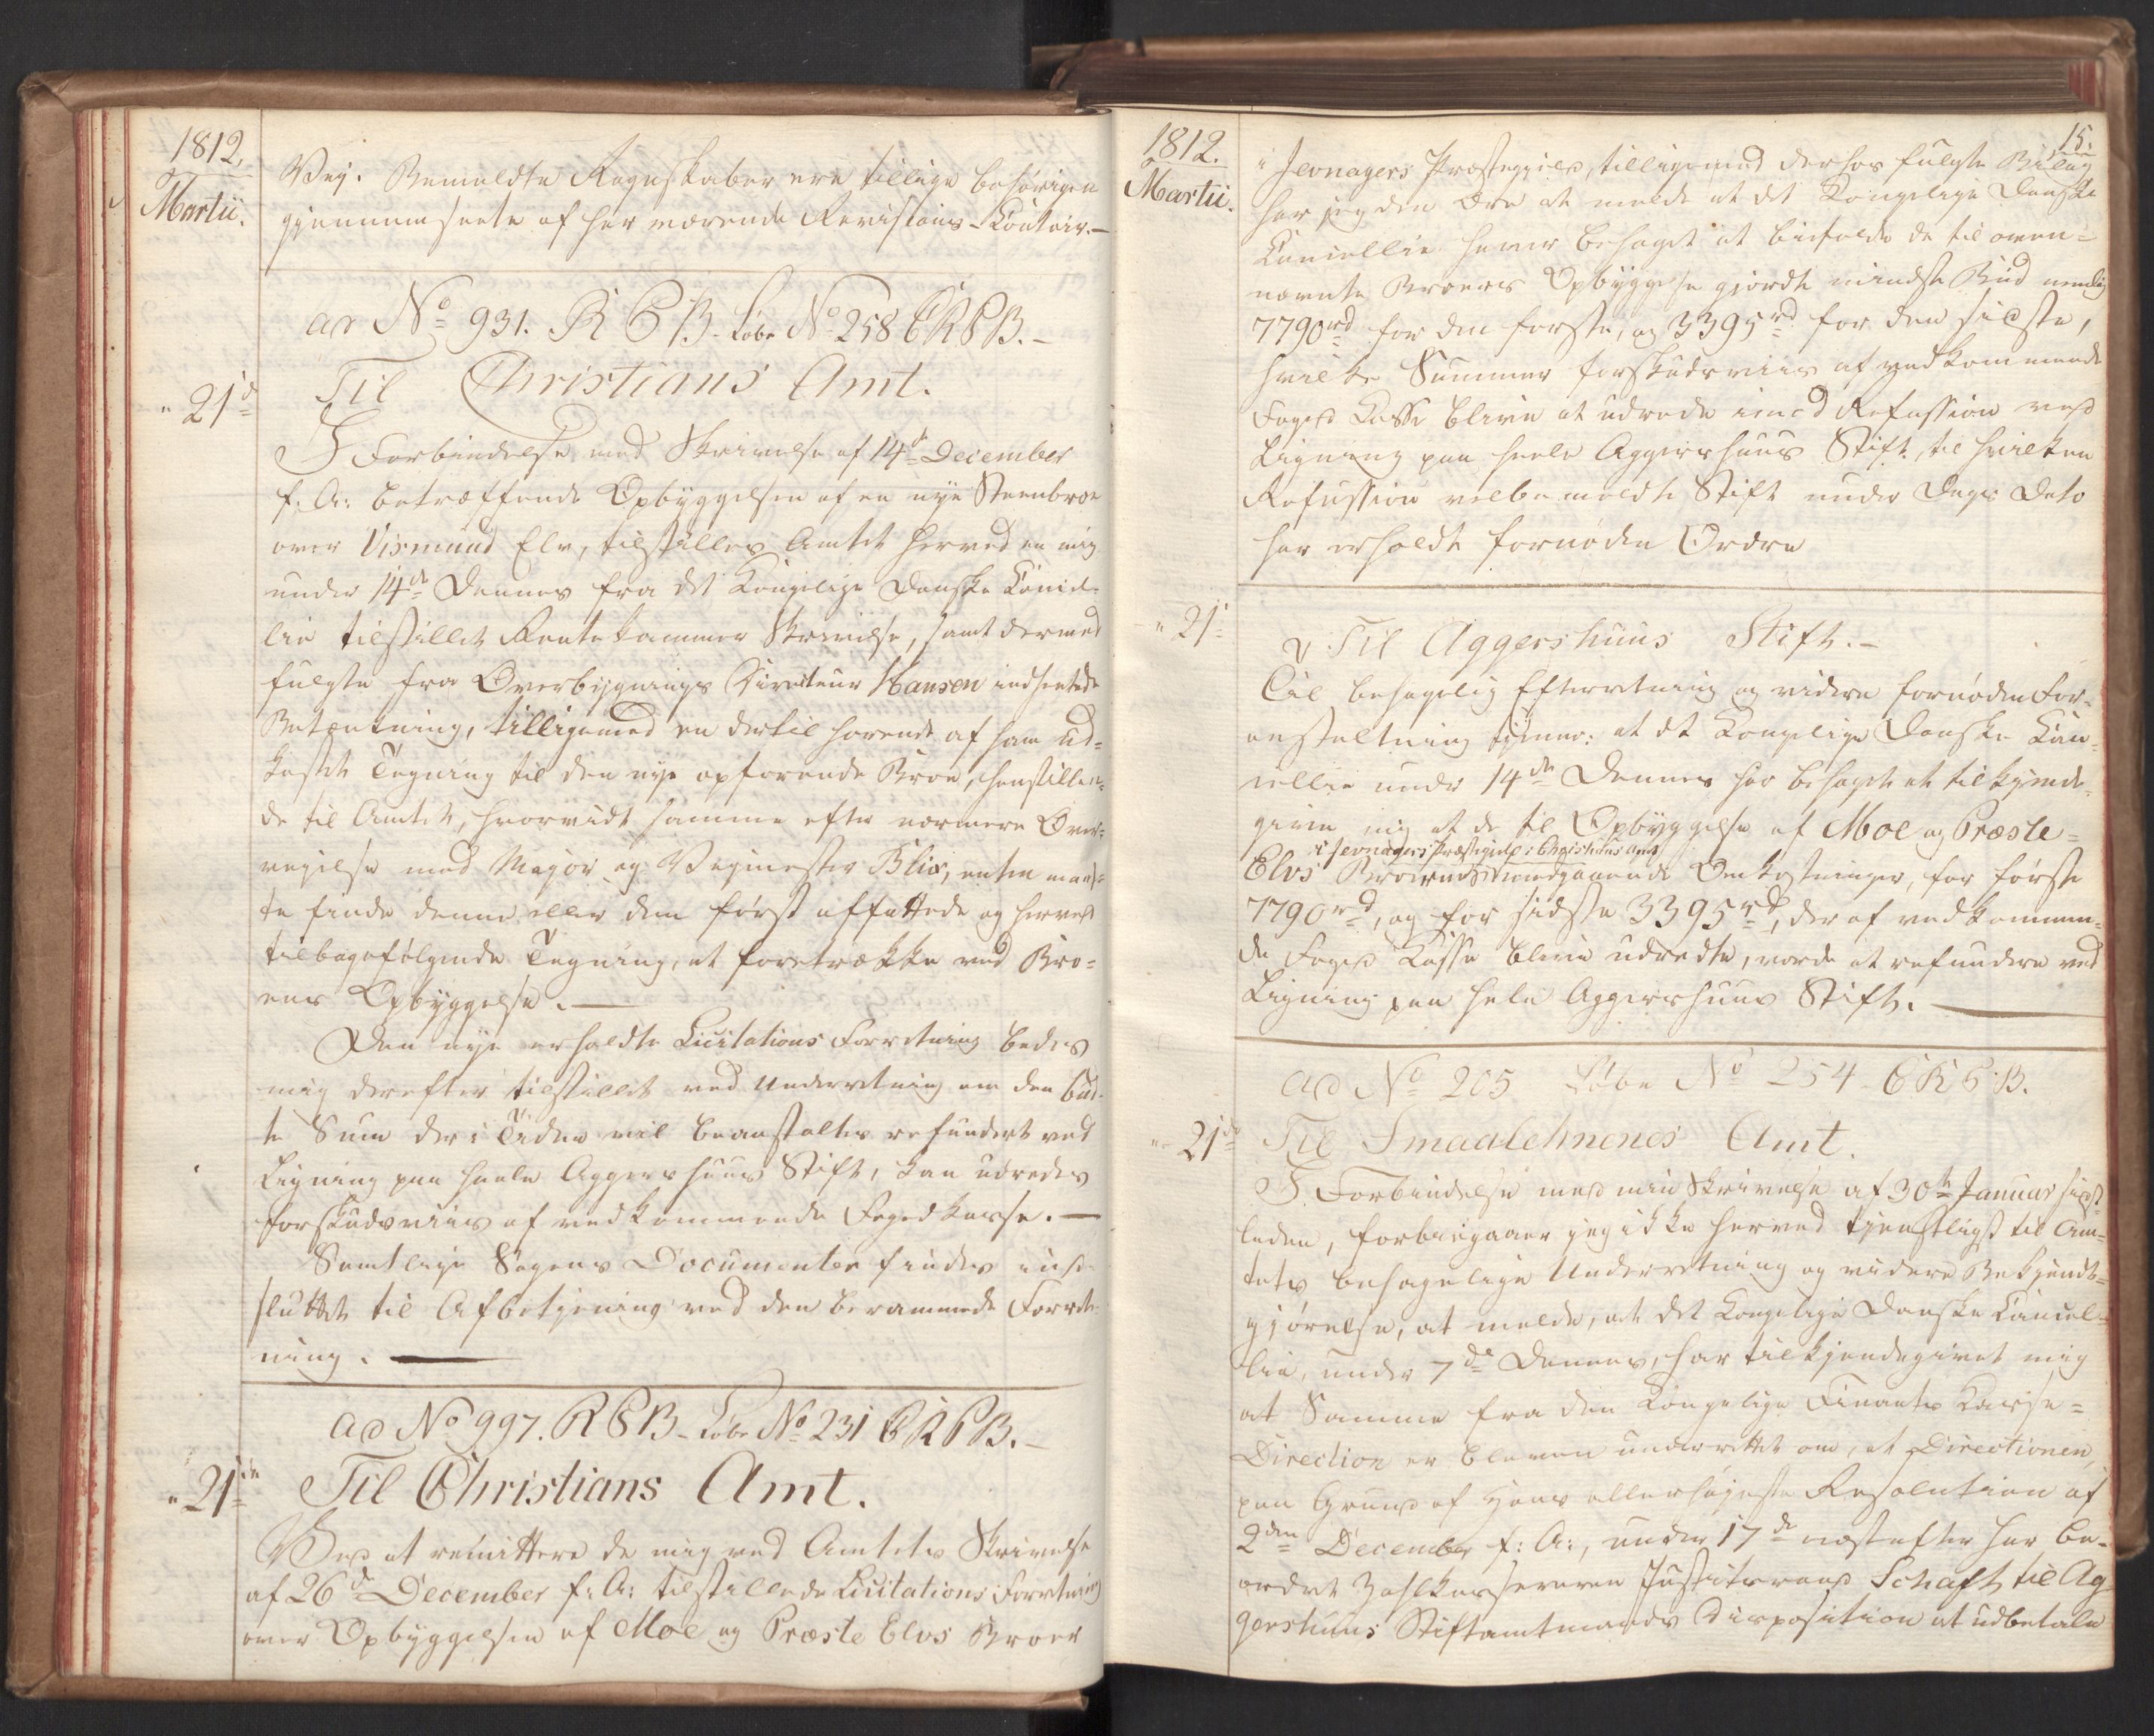 1812.
Martii.
Vej. Bemeldte Regnskaber ere tillige behørigen
gjennemseete af her værende Revisions-Contoir.—
ad No 931. R C B. Løbe No 258 CRCB.—
" 21d
Til Christians Amt.
I Forbindelse med Skrivelse af 14de December
f: A: betræffende Opbyggelsen af en nye Steenbroe
over Vismund Elv, tilstilles Amtet herved en mig
under 14de Dennes fra det Kongelige Danske Cancel-
lie tilstillet Rentekammer Skrivelse, samt dermed
fulgte fra Overbygnings Directeur Hansen indhentede
Betænkning, tilligemed en dertil hørende af ham ud-
kastet Tegning til den nye opførende Broe, henstillen-
de til Amtet, hvorvidt samme efter nærmere Over-
vejelse med Major og Vejmester Blix, enten maat-
te finde denne eller den først affattede og herved
tilbagefølgende Tegning, at foretrække ved Bro-
ens Opbyggelse.—
Den nye erholdte Licitations Forretning bedes
mig derefter tilstillet ved Underretning om den bud-
te Sum der i Tiden vil beanstaltes refunderet ved
Ligning paa heele Aggershuus Stift, kan udredes
forskudsviis af vedkommende Foged Casse.—
Samtlige Sagens Documenter findes ind-
sluttet til Afbetjening ved den berammede Forret-
ning.—
ad No 997. R C B - Løbe No 231 CRCB.—
" 21de
Til Christians Amt.
Ved at remittere de mig ved Amtets Skrivelse
af 26d December f: A: tilstillede Licitations Forretning
over Opbyggelsen af Moe og Præste Elvs Broer
15.
1812.
Martii.
i Jevnagers Præstegield, tilligemed derhos fulgte Bilag
har jeg den Ære at melde at det Kongelige Danske
Cancellie haver behaget at bifalde de til oven-
nævnte Broers Opbyggelse gjordte mindste Bud nemlig
7790rd for den første, og 3395rd for den sidste,
hvilke Summer forskudsviis af vedkommende
Foged Casse blive at udrede imod Refusion ved
Ligning paa heele Aggershuus Stift, til hvilken
Refussion velbemeldte Stift under Dags Dato
har erholdt fornøden Ordre
" 21
Til Aggershuus Stift.—
Til behagelig Efterretning og videre fornøden For-
anstaltning tjener: at det Kongelige Danske Can-
cellie under 14de Dennes har behaget at tilkjende-
give mig at de til Opbyggelse af Moe og Præste-
i Jevnagers Præstegield i Christians Amt
Elvs Broer medgaaende Omkostninger, for første
7790rd, og for sidste 3395rd, der af vedkommen-
de Foged Casse blive udredte, vorde at refundere ved
Ligning paa hele Aggershuus Stift.—
ad No 205 Løbe No 254 CRCB.
" 21de
Til Smaalehnenes Amt.
I Forbindelse med min Skrivelse af 30te Januar sidst-
leden, forbiegaaer jeg ikke herved tjenstligst til Am-
tets behagelige Underretning og videre Bekjendt-
gjørelse, at melde, at det Kongelige Danske Cancel-
lie, under 7de Dennes, har tilkjendegivet mig
at Samme fra den Kongelige Finants Casse-
Direction er bleven underrettet om, at Directionen,
paa Grund af høns allerhøjeste Resolution af
2den December f: A:, under 17de næstefter har be-
ordret Zahlkasserer Justitsraad Schaft til Ag-
gershuus Stiftamtmands Disposition at udbetale